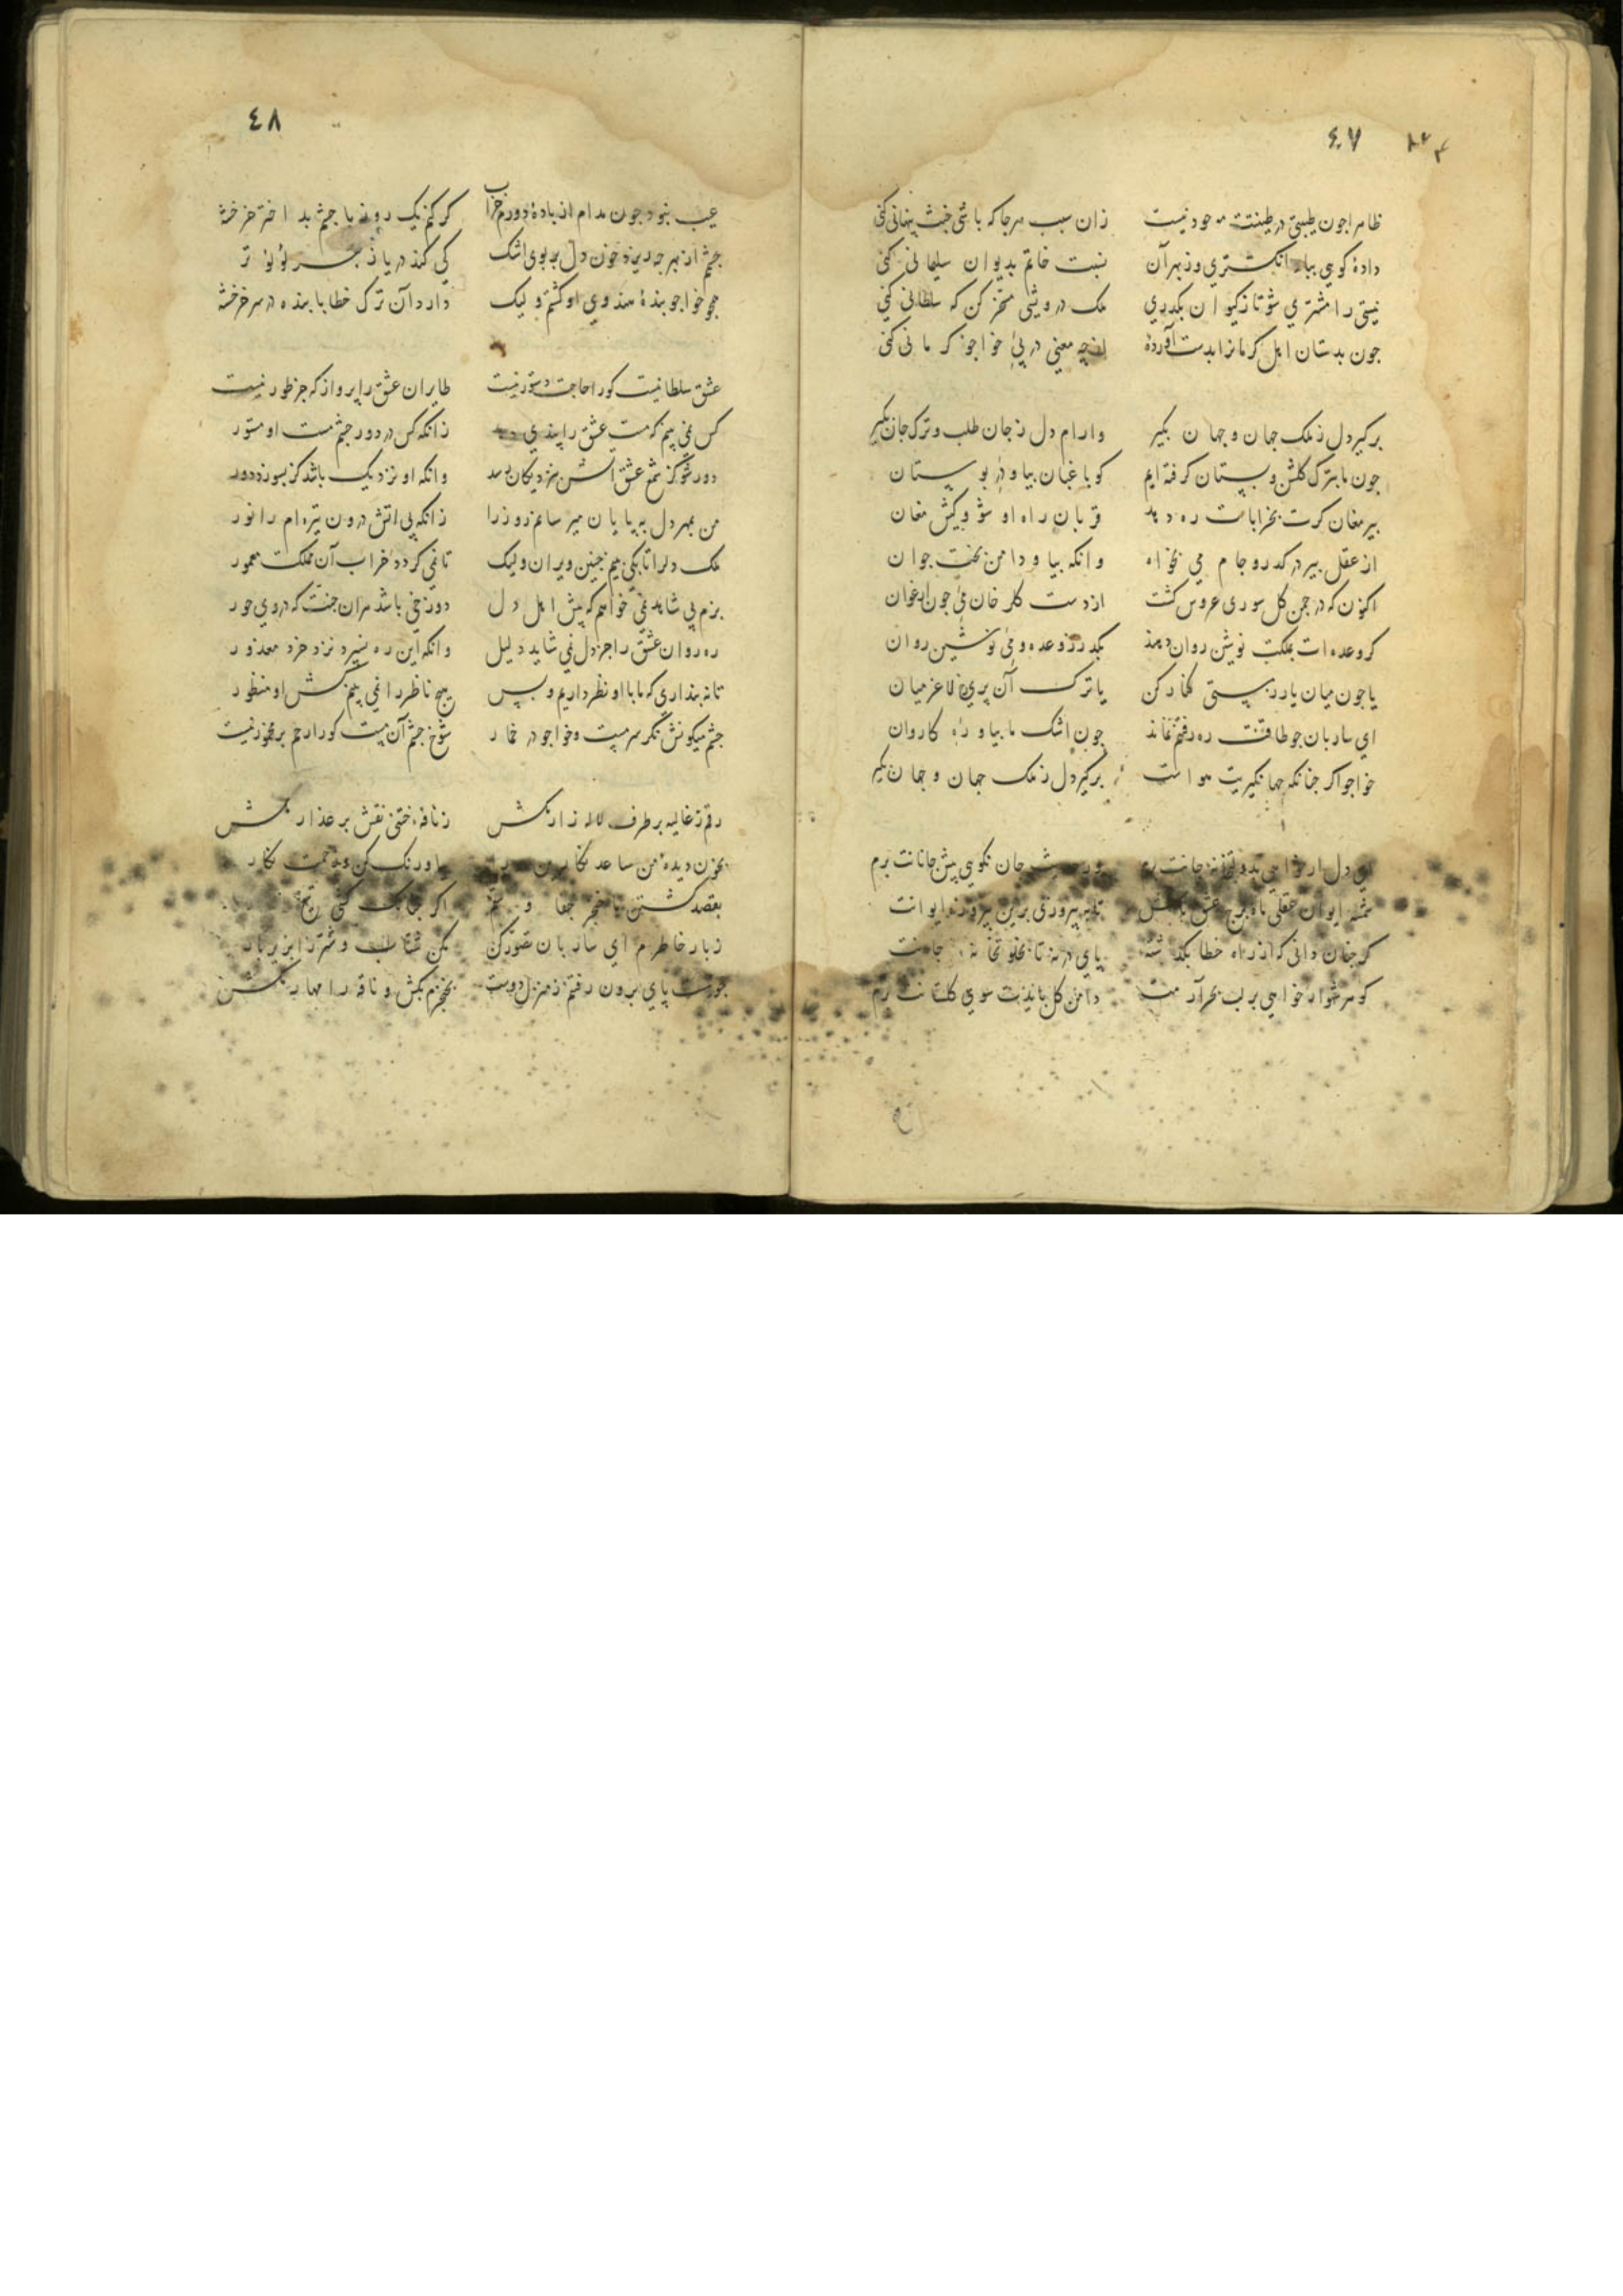 ٤٠٧
ظاهرا جون طیبتی در طینتت موجود نیست زان سبب هرجا که باشی خبث پنهانی کنی
دادهٔ کوهی بباد انکشتری وز بهر آن نسبت خاتم بدیوان سلیمانی کنی
نیستی را مشتری شو تا ز کیوان بکذری ملک درویشی مسخر کن که سلطانی کنی
جون بدستان اهل کرمانرا بدست آوردهٔ از چه معنی در پی خواجو کرمانی کنی
برکیر دل ز ملک جهان و جهان بکیر وارام دل ز جان طلب و ترک جان بکیر
جون ما بترک کلشن و بستان کرفته ایم کو باغبان بیا و در بوستان
بیر مغان کرت بخرابات ره دهد قربان راه او شو و کیش مغان
از عقل بیر در کذر و جام می بخواه وانکه بیا و دامن بخت جوان
اکنون که در جمن کل سوری عروس کشت از دست کلرخان می جون ارغوان
کر وعده ات بملکت نوشین روان دهند بکذر ز وعده و می نوشین روان
یا جون میان یار ز بستی کنار کن یا ترک آن بری رخ لاغر میان
ای ساربان جو طاقت ره رفتنم نماند جون اشک ما بیا و ره کاروان
خواجو اکر جنانکه جهانکیریت هواست برکیر دل ز ملک جهان و جهان بکیر
ای دل ار خواهی بدولتخانه جانت برم جان نکوی پیش جانانت برم
شمسه ایوان عقلی ماه برج عشق تا به پیروزی برین پیروزه ایوانت
کر جنان دانی که از راه خطا بکذشته پای در نه تا بخلوتخانه
کوهر شهوار خواهی بر لب بحر آرمت دامن کل بایذت سوی کلستانت برم
٤٨
عیب نبود جون مدام از بادهٔ دورم خراب کر کنم یک روز با جشم بد اختر خرخشه
جشم از بهر جه ریزد خون دل بر بوی اشک کی کند دریا ز بهر لؤلؤ تر
همجو خواجو بندهٔ هندوی او کشتم ولیک دارد آن ترک خطا با بنده در سر خرخشه
عشق سلطانیست کورا حاجت دستور نیست طایران عشق را پرواز که جز طور نیست
کس نمی بینم که مست عشق را پندی دهد زانکه کس در دور جشم مست او مستور
دور شو کز شمع عشق آتش بنزدیکان رسد وانکه او نزدیک باشد کر بسوزد دور
من بمهر دل ببایان میرسانم روز را زانکه بی اتش درون تیره ام را نور
ملک دلرا تا بکی بینم جنین ویران ولیک تا نمی کردد خراب آن مملکت معمور
بزم بی شاهد نمی خواهم که پیش اهل دل دوزخی باشد هران جنت که در وی حور
ره روان عشق را جز دل نمی شاید دلیل وانکه این ره نسپرد نزد خرد معذور
تا نبنداری که ما با او نظر داریم و بس هیج ناظر را نمی بینم کش او منظور
جشم میکونش نکر سرمست و خواجو در خمار شوخ جشم آن مست کورا رحم بر مخمور نیست
رقم ز غالیه بر طرف لاله زار مکش ز نافه ختنی نقش بر عذار مکش
بخون دیدهٔ من ساعد نکارین را بیا و رنک کن و زحمت نکار
بقصد کشتن ما خنجر جفا و ستم اکر جنانک کشی تیغ
ز بار خاطرم ای ساربان تصور کن مکن شتاب و شتر زا بزیر بار
جو نیست پای برون رفتنم ز منزل دوست بخنجرم بکش و ناقه را مهار مکش